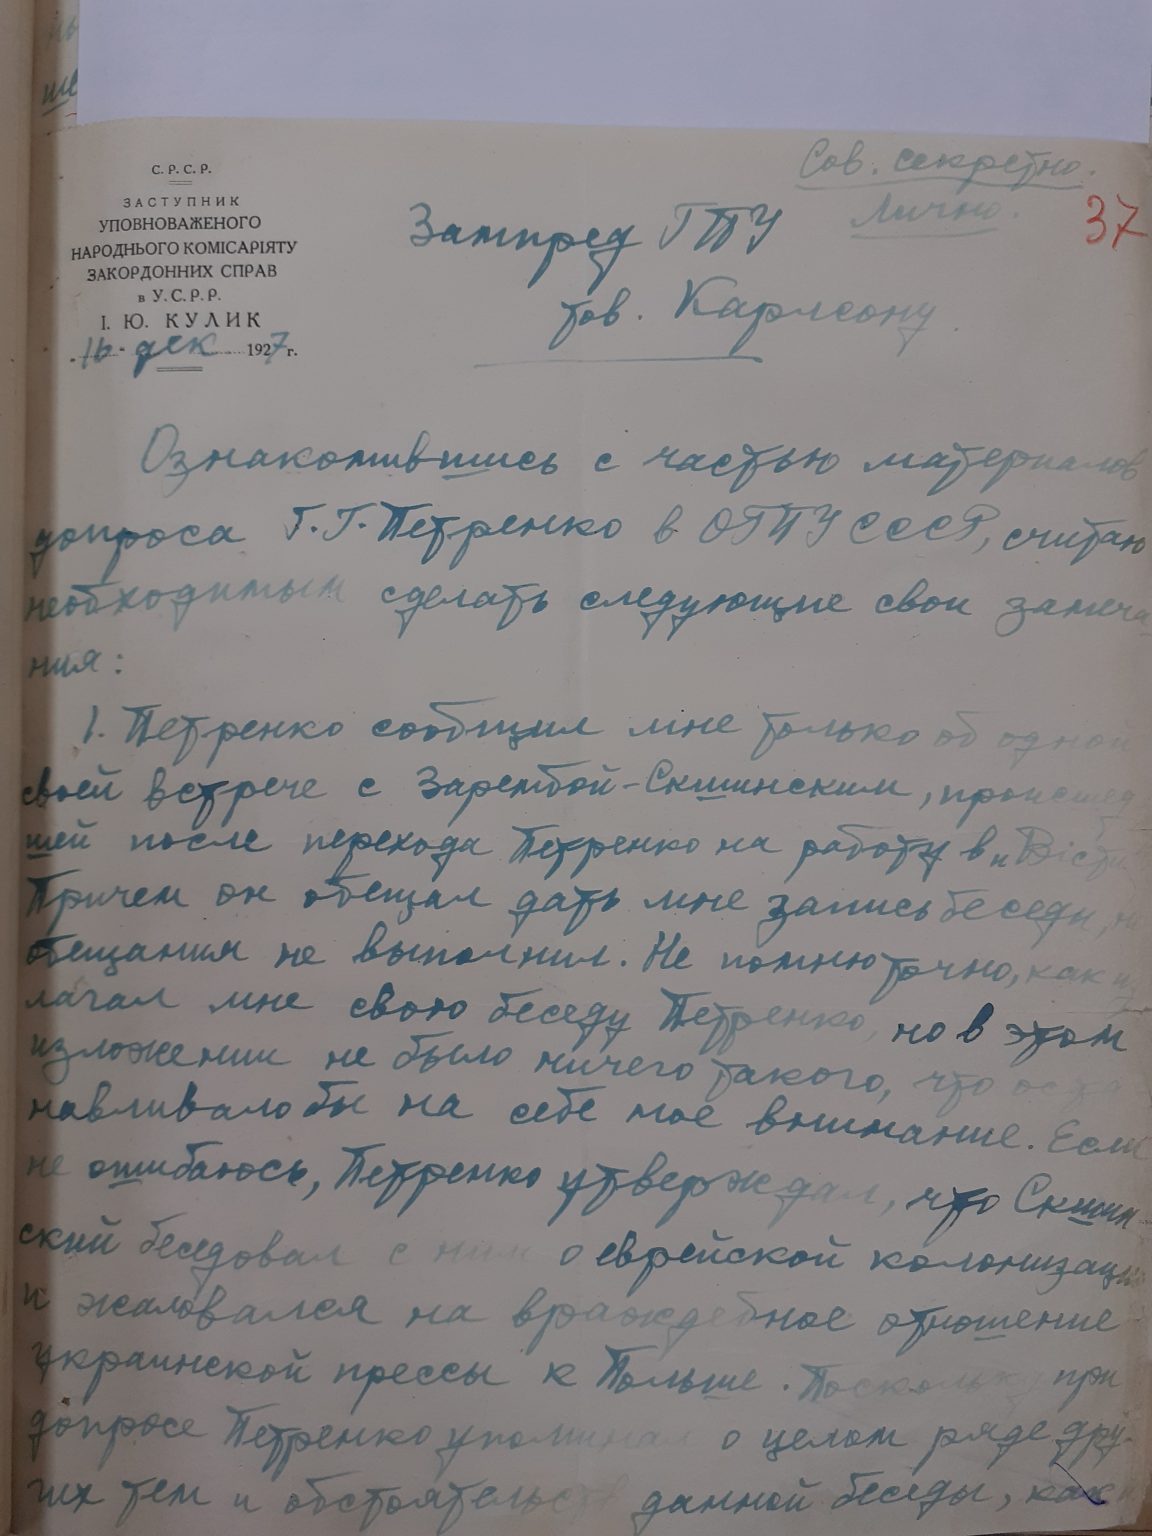 Сов. секретно.
Лично.
37
С. Р. С. Р.
ЗАСТУПНИК
УПОВНОВАЖЕНОГО
НАРОДНЬОГО КОМІСАРІЯТУ
ЗАКОРДОННИХ СПРАВ
в У. С. Р. Р.
І. Ю. КУЛИК
„16" дек 1927 г.
Зампред ГПУ
тов. Карлсону.
Ознакомившись с частью материалов
допроса Г. Г. Петренко в ОГПУ СССР, считаю
необходимым сделать следующие свои замеча
ния:
1. Петренко сообщил мне только об одной
своей встрече с Зарембой-Скшинским, происшед
шей после перехода Петренко на работу в „Вісти
Причем он обещал дать мне запись беседы, но
обещания не выполнил. Не помню точно, как и
лагал мне свою беседу Петренко, но в этом
изложении не было ничего такого, что оста
навливало бы на себе мое внимание. Если
не ошибаюсь, Петренко утверждал, что Скшин
ский беседовал с ним о еврейской колонизации
и жаловался на враждебное отношение
украинской прессы к Польше. Поскольку при
допросе Петренко упоминал о целом ряде дру-
гих тем и обстоятельств данной беседы, как